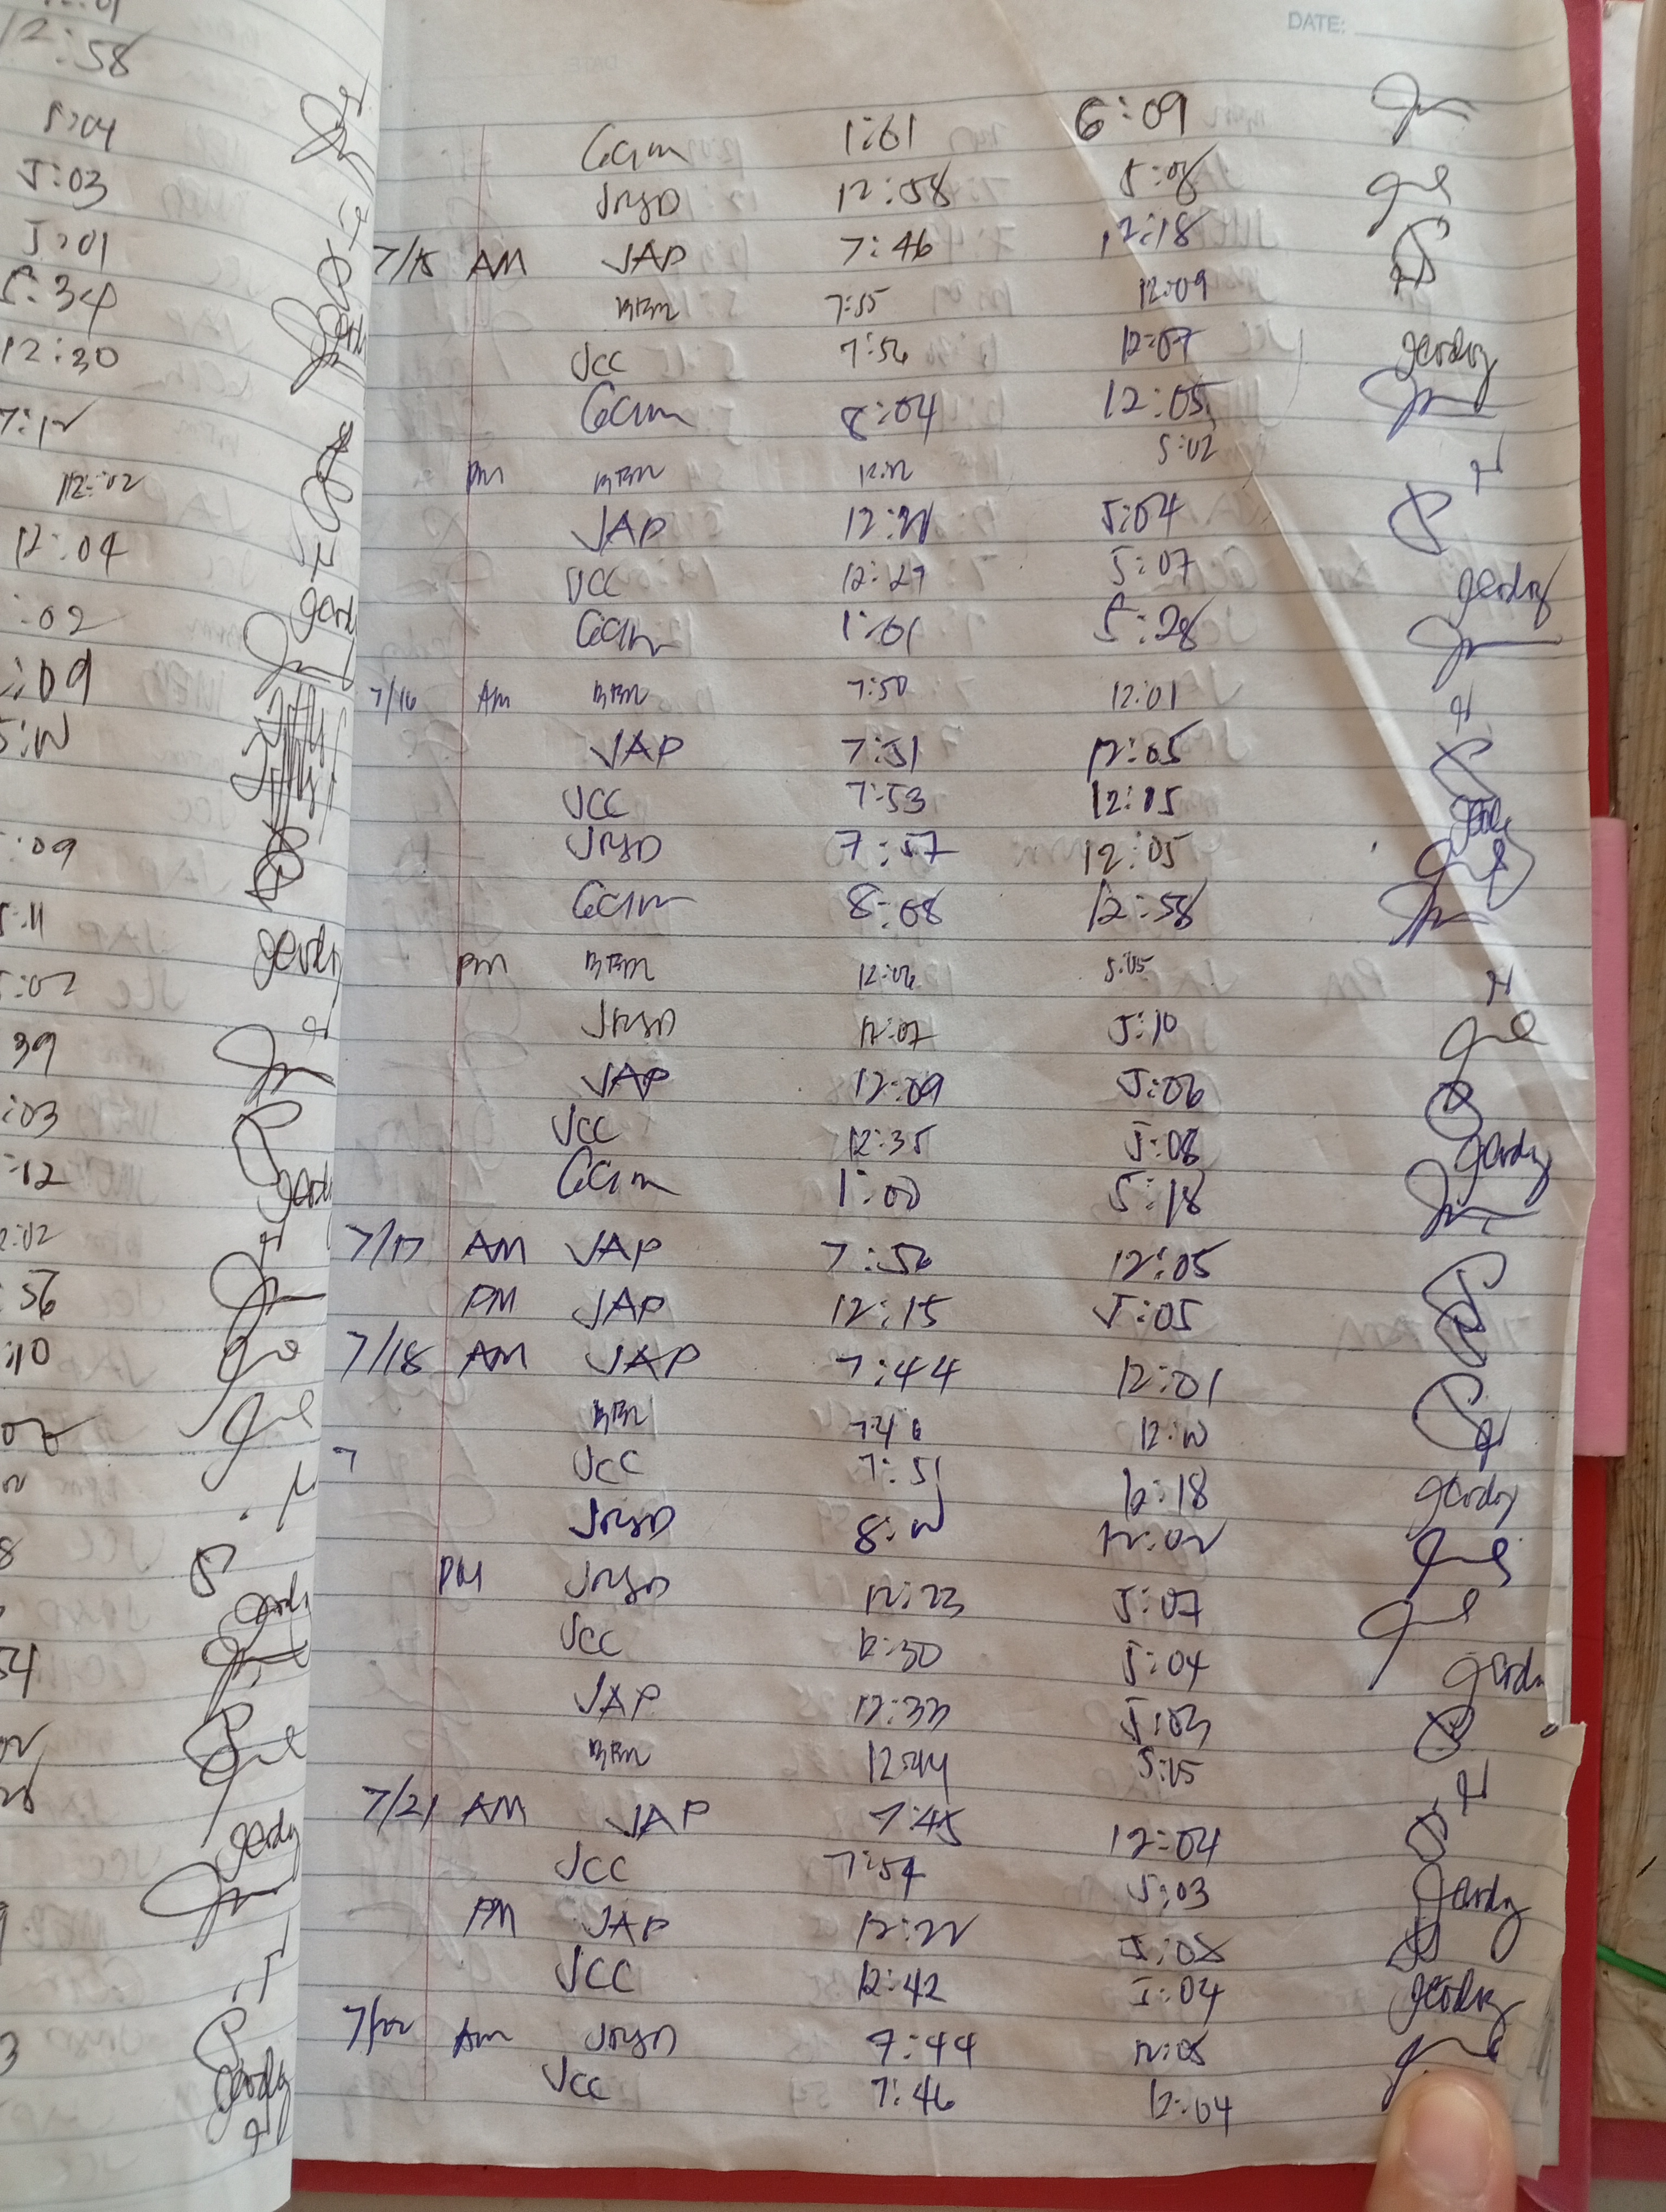 12:58
5:04
5:03
5:01
5:34
12:30
7:12
12:02
12:04
:02
:09
:09
5:11
5:02
39
:03
:12
2:02
:56
:10
54
DATE:
GCIM 1:01 6:09
JRYD 12:58 5:08
7/15 AM JAP 7:46 12:18
BBM 7:55 12:09
JCC 7:56 12:07 geordz
GCIM 8:04 12:05
PM BBM 12:12 5:02
JAP 12:21 5:04
JCC 12:29 5:07 geordz
GCIM 1:01 5:28
7/16 AM BBM 7:50 12:01
JAP 7:51 12:05
JCC 7:53 12:15
JRYD 7:57 12:05
GCIM 8:08 12:58
PM BBM 12:06 5:05
JRYD 12:07 5:10
JAP 12:09 5:06
JCC 12:35 5:08 geordz
GCIM 1:00 5:18
7/17 AM JAP 7:56 12:05
PM JAP 12:15 5:05
7/18 AM JAP 7:44 12:01
BBM 7:46
7 JCC 7:51 12:18 geordz
JRYD 12:02
PM JRYD 12:23 5:07
JCC 12:30 5:04 geordz
JAP 12:33 5:03
BBM 12:44 5:05
7/21 AM JAP 7:45 12:04
JCC 7:54 5:03 geordz
PM JAP 12:22 5:08
JCC 12:42 5:04 geordz
7/22 AM JRYD 7:44 12:05
JCC 7:46 12:04